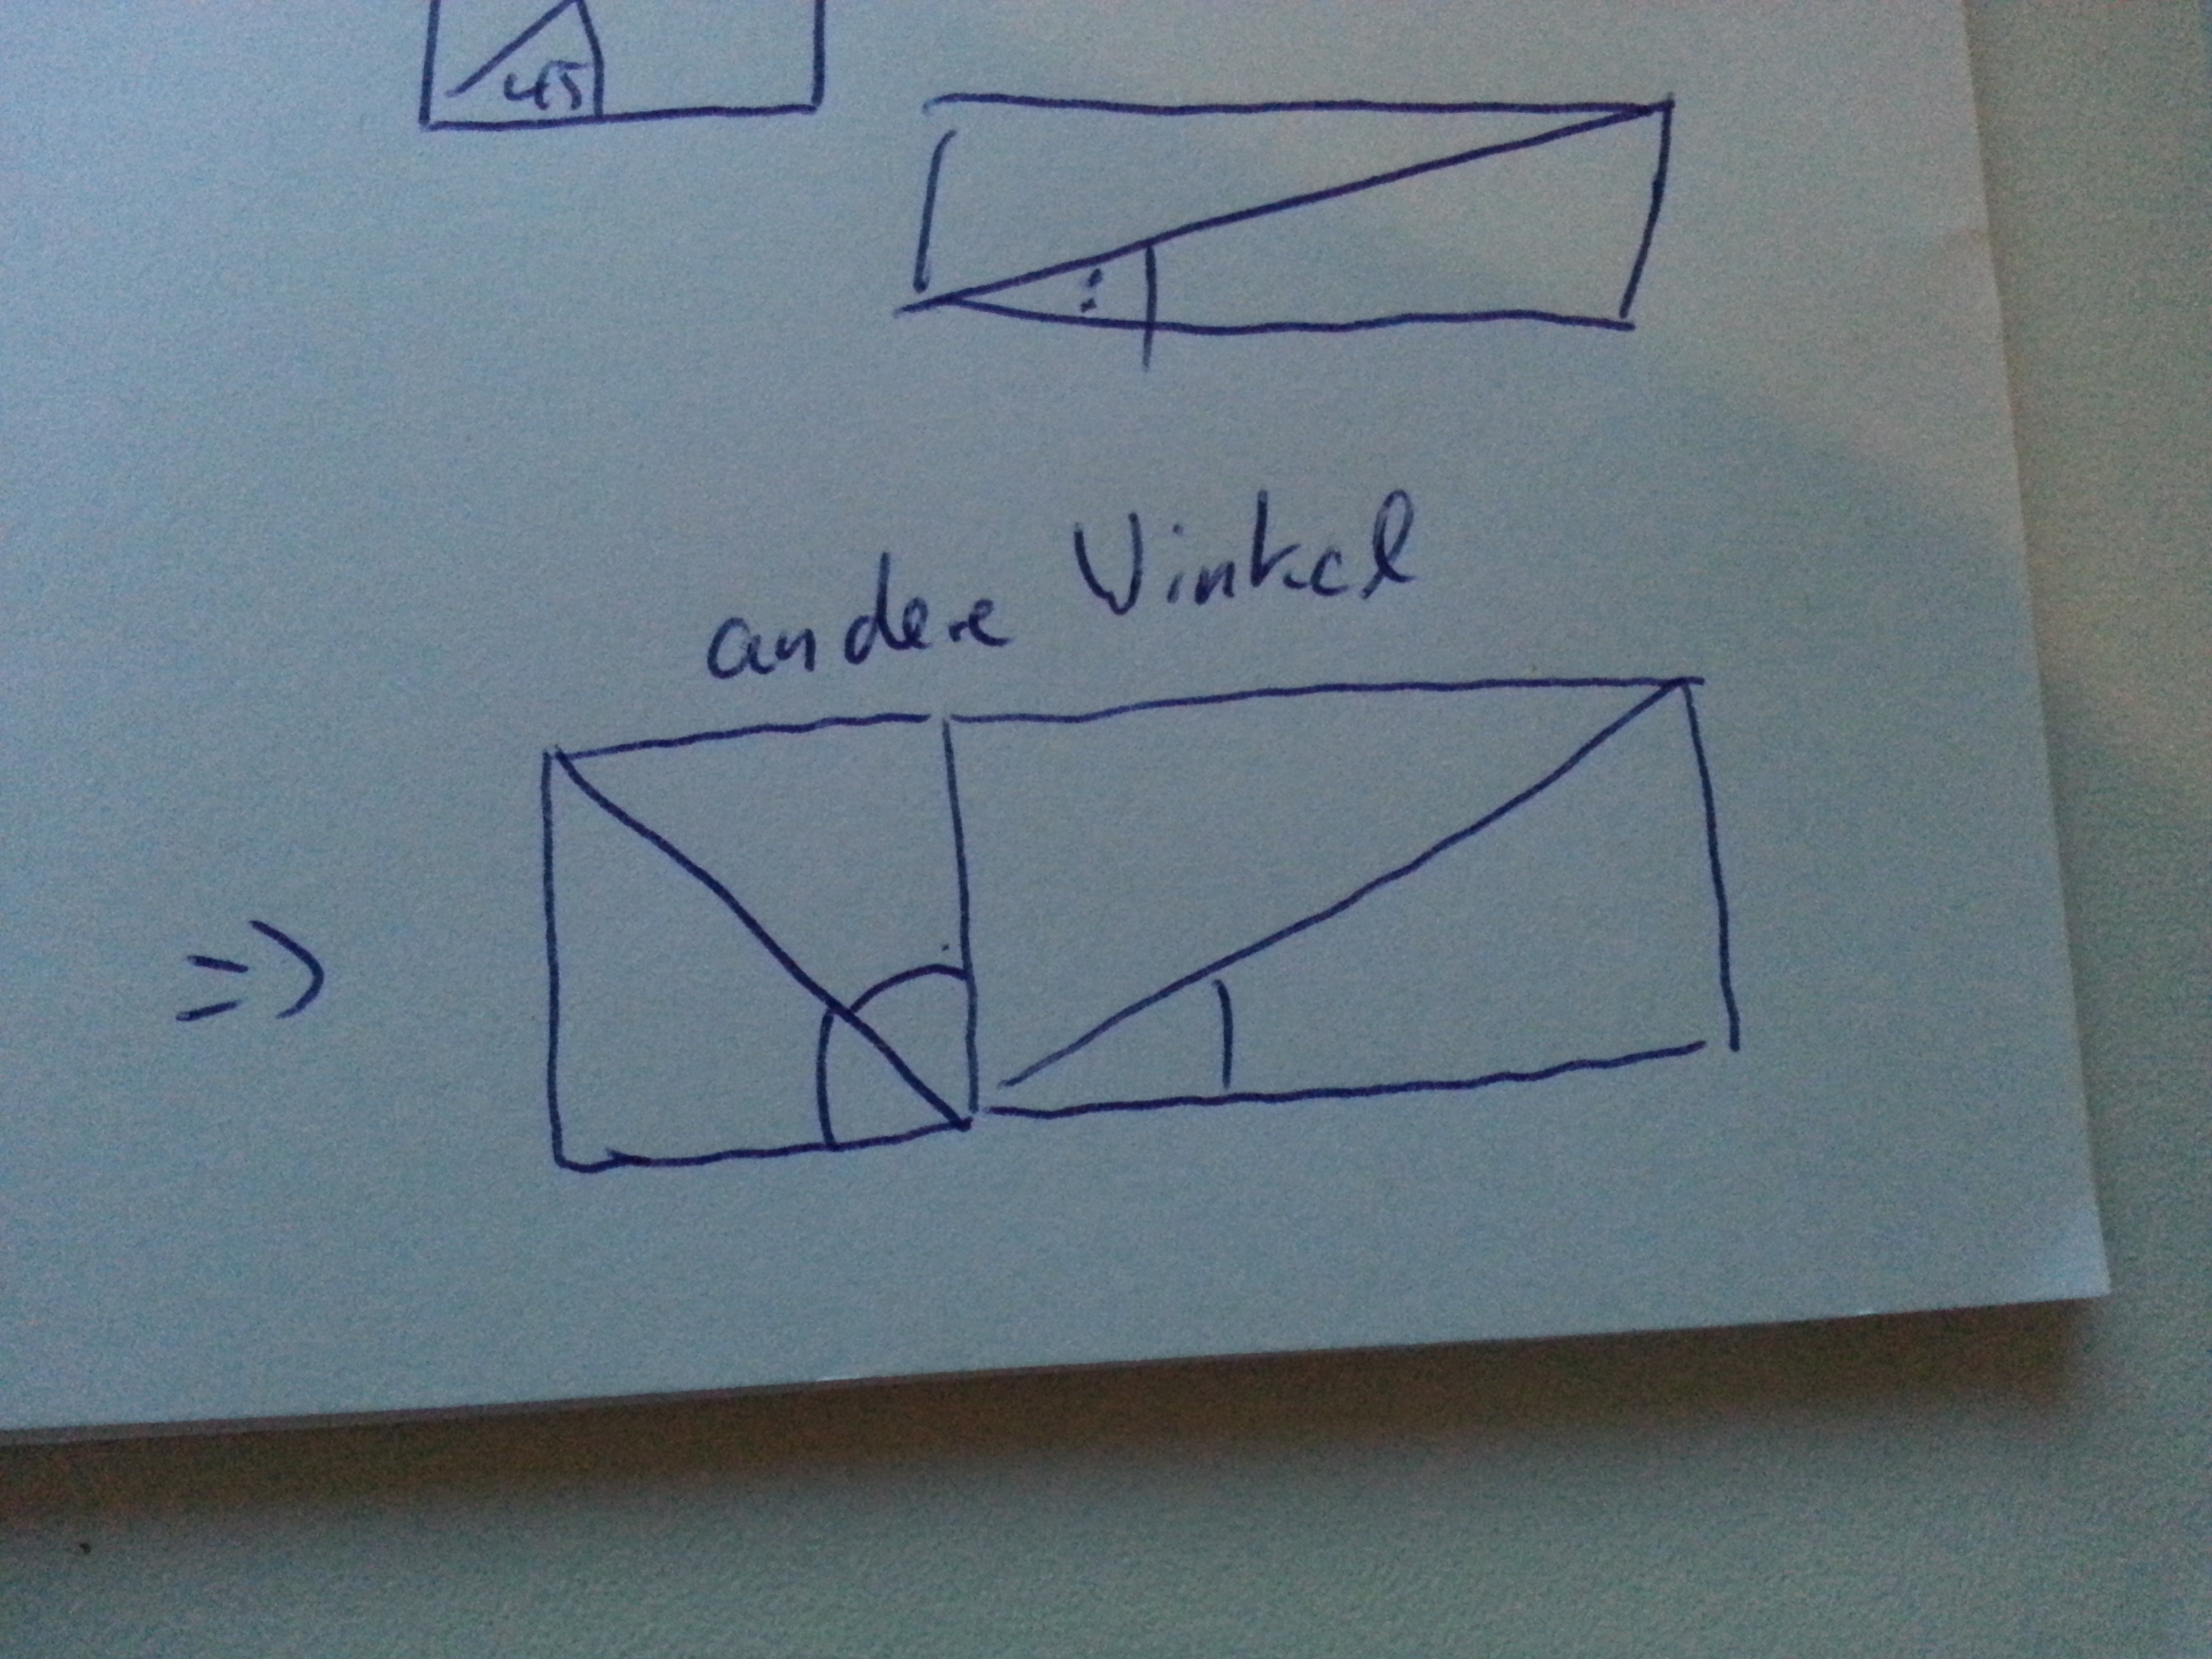 45
andere Winkel
=>